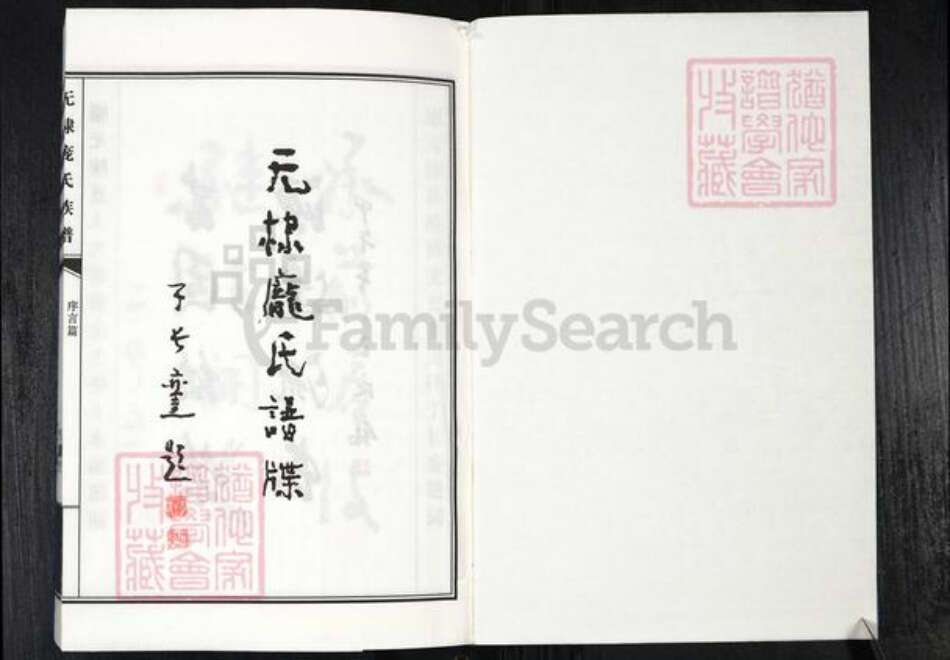 猶他家
譜學會
收藏
无棣龐氏譜牒
題
无棣庞氏族譜
序言篇
猶他家
譜學會
收藏
FamilySearch